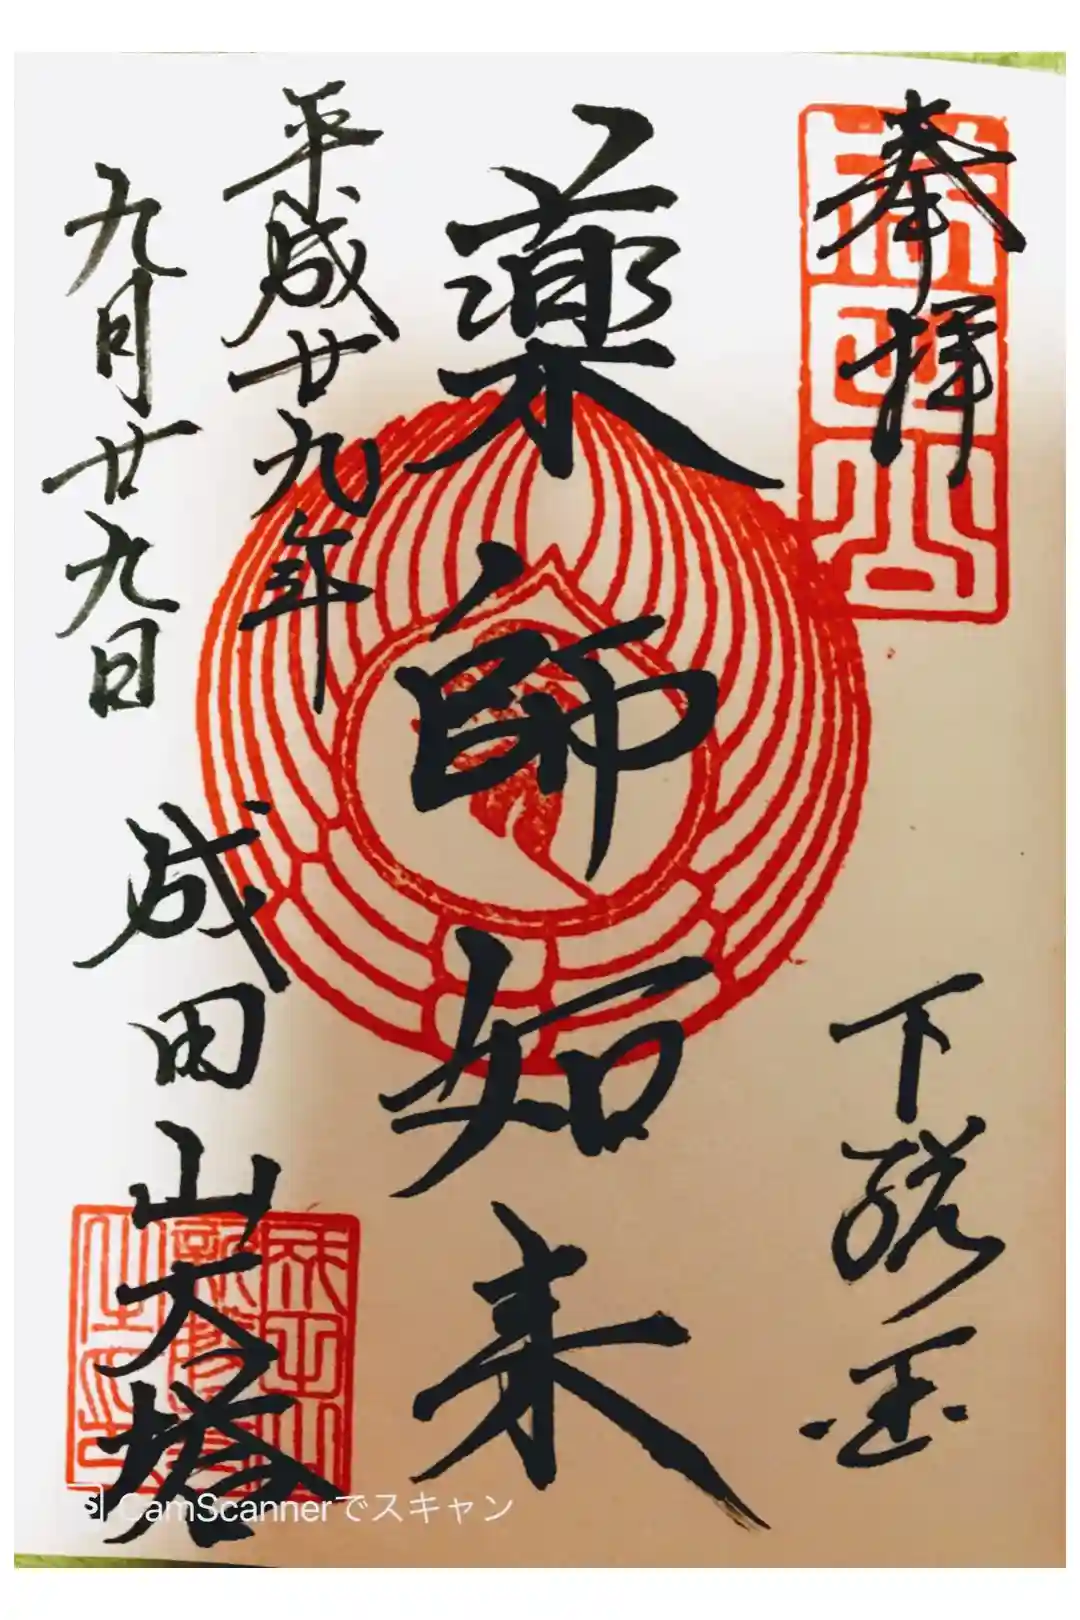 奉拝
下総国
薬師如来
平成廿九年
九月廿九日
成田山大塔
成田山
CamScannerでスキャン